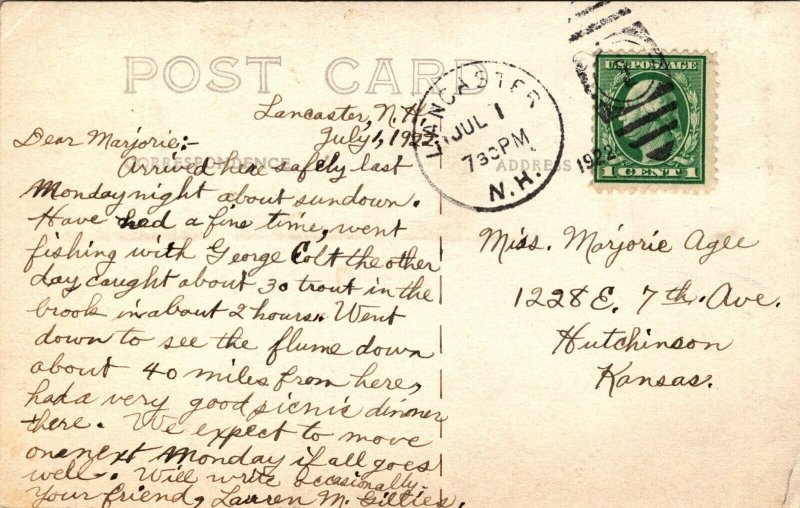 POST CARD
CORRESPONDENCE
ADDRESS
Lancaster, N.H.
July 1, 1922
Dear Marjorie:-
Arrived here safely last
Monday night about sundown.
Have had a fine time, went
fishing with George Colt the other
day caught about 30 trout in the
brook in about 2 hours. Went
down to see the flume down
about 40 miles from here,
had a very good picnic dinner
there. We expect to move
on next Monday if all goes
well. Will write occasionally.
Your friend, Lauren M. Gillies.
LANCASTER
JUL 1
730 PM
N.H.
1922
U.S. POSTAGE
1 CENT 1
Miss. Marjorie Agee
1228 E. 7th. Ave.
Hutchinson
Kansas.